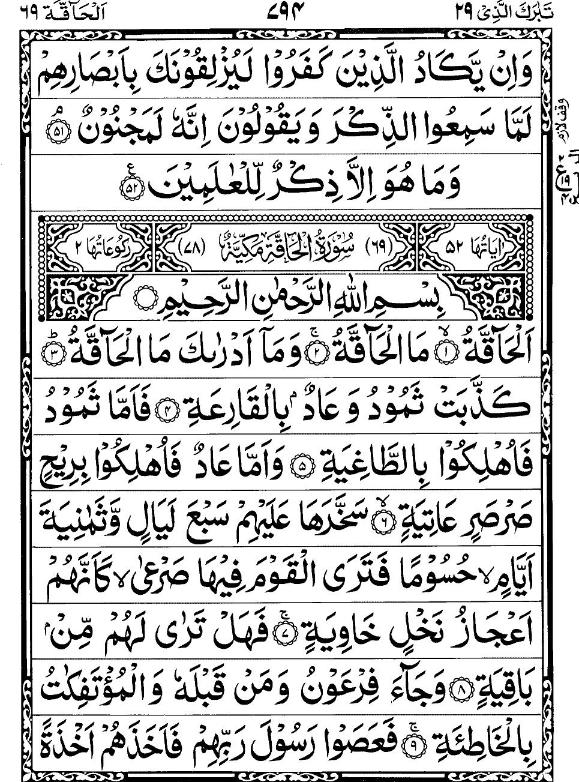 تَبٰرَكَ الَّذِیْ ٢٩
٧٩٤
اَلْحَآقَّة ٦٩
وَاِنْ يَّكَادُ الَّذِيْنَ كَفَرُوْا لَيُزْلِقُوْنَكَ بِاَبْصَارِهِمْ
لَمَّا سَمِعُوا الذِّكْرَ وَيَقُوْلُوْنَ اِنَّهٗ لَمَجْنُوْنٌ ۘ ٥١
وَمَا هُوَ اِلَّا ذِكْرٌ لِّلْعٰلَمِيْنَ ٥٢ ع
وقف لازم
١٩
اٰيَاتُهَا ٥٢
(٦٩) سُوْرَةُ الْحَاقَّةِ مَكِّيَّةٌ (٧٨)
رُكُوْعَاتُهَا ٢
بِسْمِ اللّٰهِ الرَّحْمٰنِ الرَّحِيْمِ
اَلْحَآقَّةُ ۙ ١ مَا الْحَآقَّةُ ۚ ٢ وَمَاۤ اَدْرٰىكَ مَا الْحَآقَّةُ ؕ ٣
كَذَّبَتْ ثَمُوْدُ وَعَادٌۢ بِالْقَارِعَةِ ٤ فَاَمَّا ثَمُوْدُ
فَاُهْلِكُوْا بِالطَّاغِيَةِ ٥ وَاَمَّا عَادٌ فَاُهْلِكُوْا بِرِيْحٍ
صَرْصَرٍ عَاتِيَةٍ ۙ ٦ سَخَّرَهَا عَلَيْهِمْ سَبْعَ لَيَالٍ وَّثَمٰنِيَةَ
اَيَّامٍ ۙ حُسُوْمًا فَتَرَى الْقَوْمَ فِيْهَا صَرْعٰى ۙ كَاَنَّهُمْ
اَعْجَازُ نَخْلٍ خَاوِيَةٍ ۚ ٧ فَهَلْ تَرٰى لَهُمْ مِّنْۢ
بَاقِيَةٍ ٨ وَجَآءَ فِرْعَوْنُ وَمَنْ قَبْلَهٗ وَالْمُؤْتَفِكٰتُ
بِالْخَاطِئَةِ ۚ ٩ فَعَصَوْا رَسُوْلَ رَبِّهِمْ فَاَخَذَهُمْ اَخْذَةً